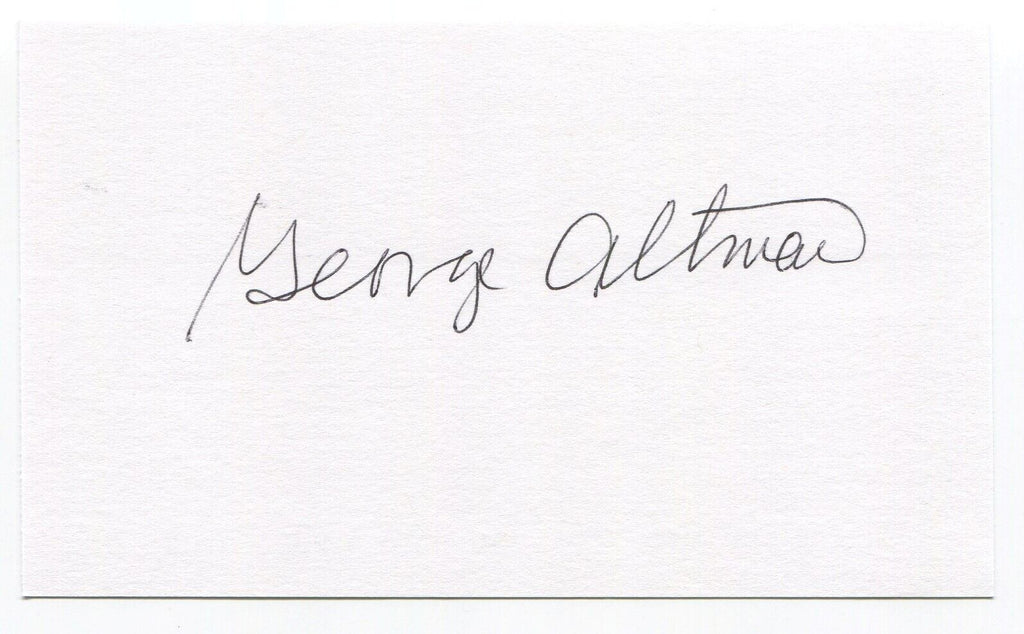 George Altman